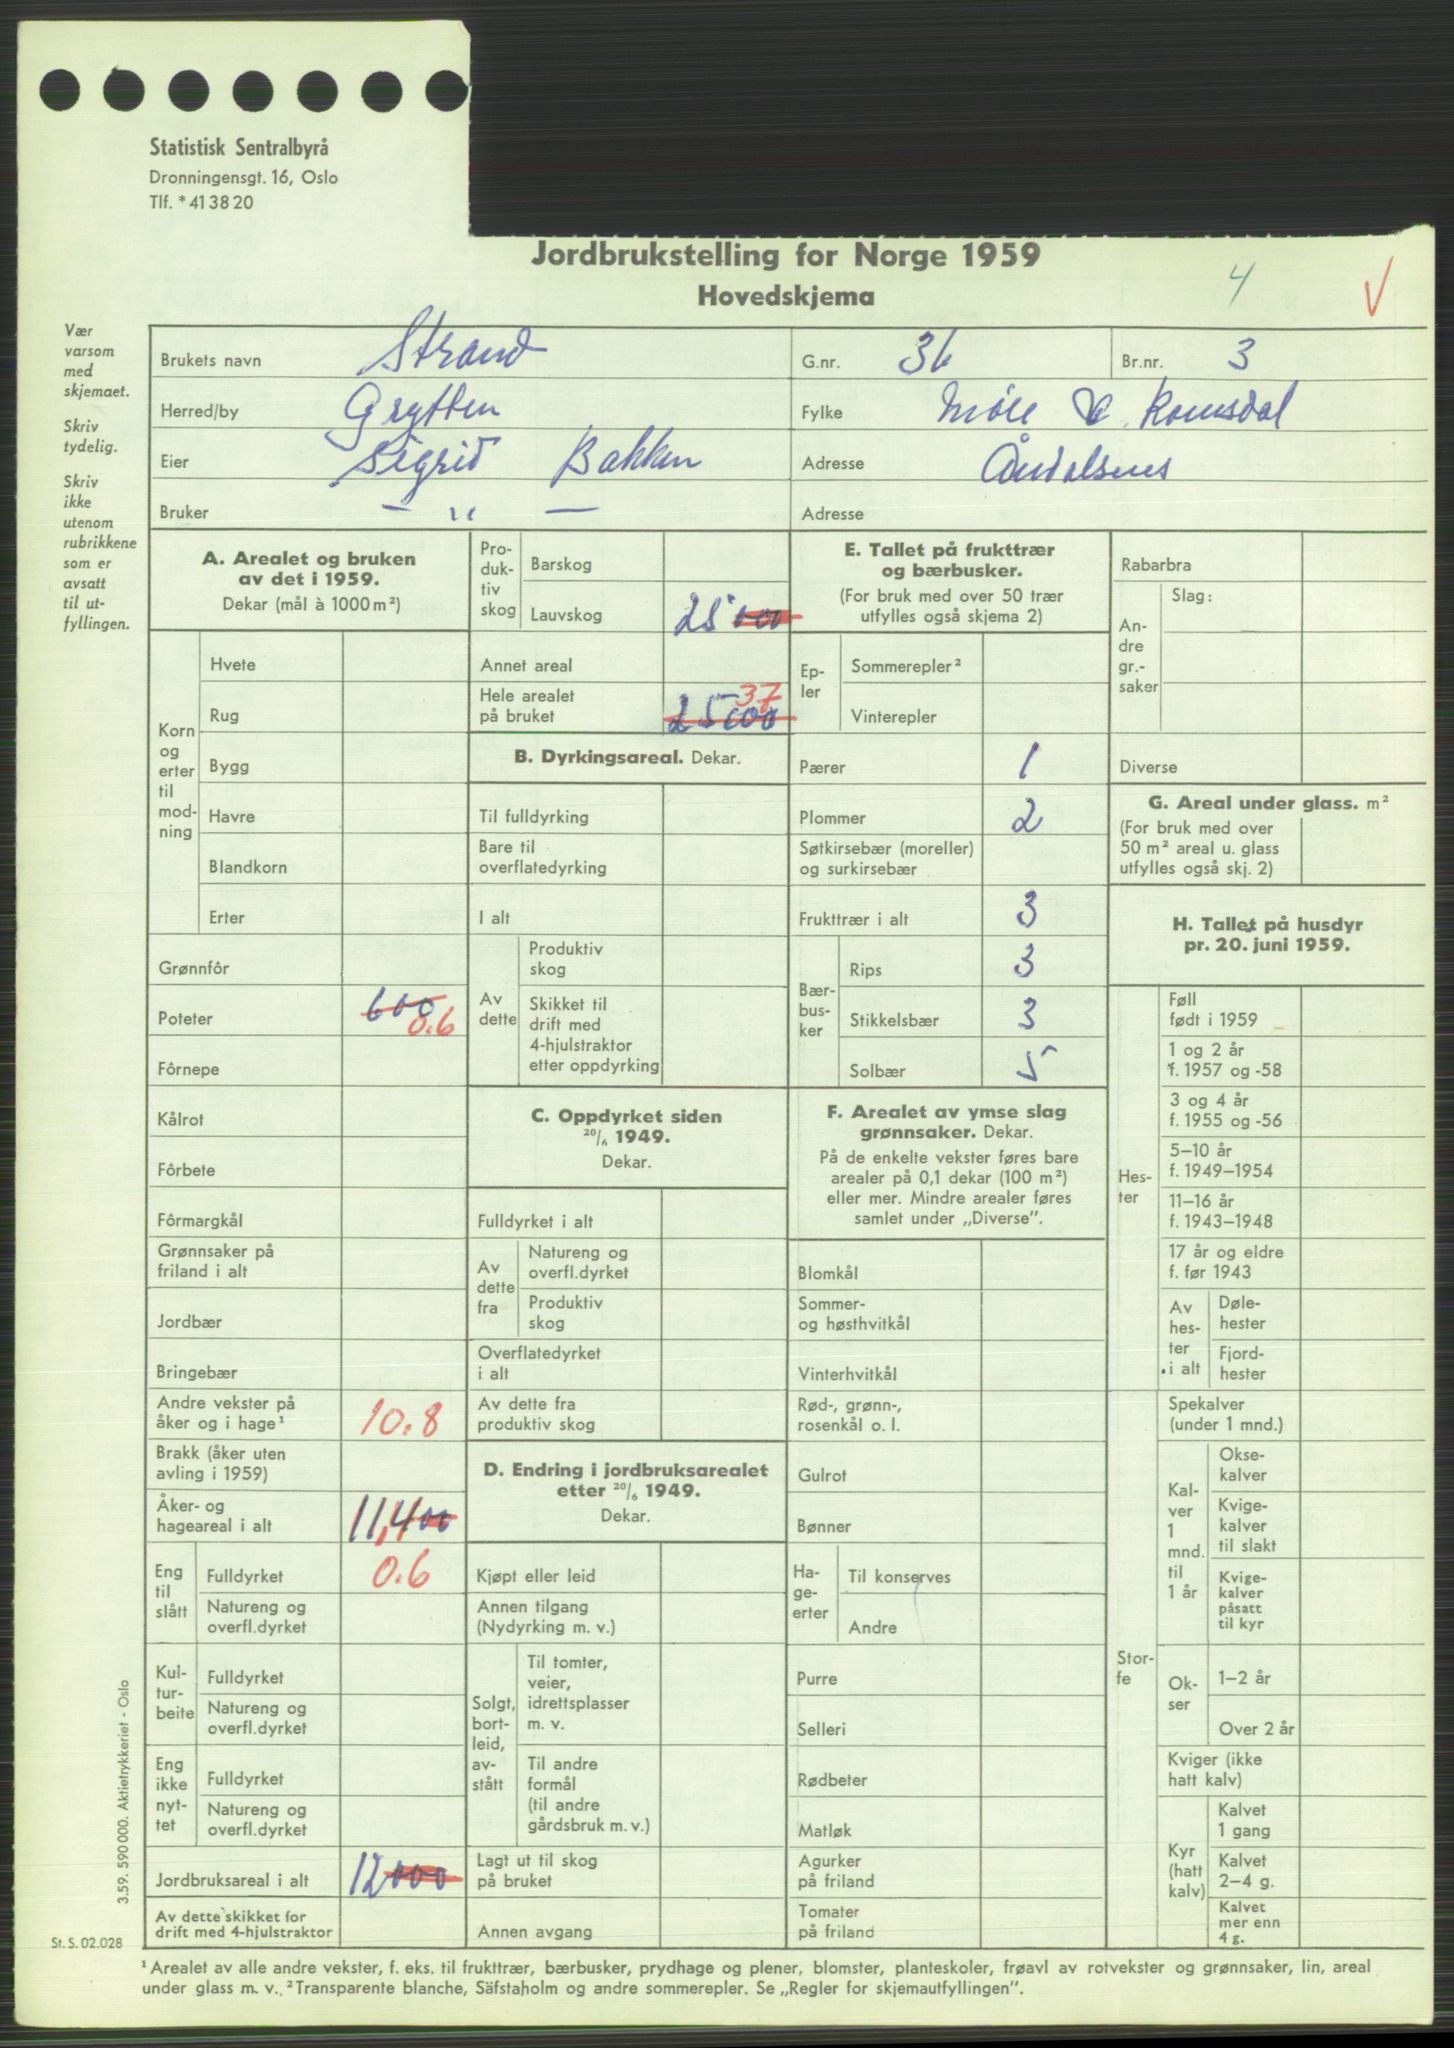 Statistisk Sentralbyrå
Dronningensgt. 16, Oslo
Tlf. * 41 38 20
Jordbrukstelling for Norge 1959
Hovedskjema
4 V
Vær
varsom
med
skjemaet.
Skriv
tydelig.
Skriv
ikke
utenom
rubrikkene
som er
avsatt
til ut-
fyllingen.
Brukets navn Strand G.nr. 36 Br.nr. 3
Herred/by Grytten Fylke Møre & Romsdal
Eier Sigrid Bakken Adresse Åndalsnes
Bruker – „ – Adresse
A. Arealet og bruken
av det i 1959.
Dekar (mål à 1000 m²)
Korn
og
erter
til
mod-
ning
Hvete
Rug
Bygg
Havre
Blandkorn
Erter
Grønnfôr
Poteter 600 0.6
Fôrnepe
Kålrot
Fôrbete
Fôrmargkål
Grønnsaker på
friland i alt
Jordbær
Bringebær
Andre vekster på
åker og i hage¹ 10.8
Brakk (åker uten
avling i 1959)
Åker- og
hageareal i alt 11,400
Eng
til
slått
Fulldyrket 0.6
Natureng og
overfl.dyrket
Kul-
tur-
beite
Fulldyrket
Natureng og
overfl.dyrket
Eng
ikke
nyt-
tet
Fulldyrket
Natureng og
overfl.dyrket
Jordbruksareal i alt 12000
Av dette skikket for
drift med 4-hjulstraktor
Pro-
duk-
tiv
skog
Barskog
Lauvskog 25000
Annet areal
Hele arealet
på bruket 25000 37
B. Dyrkingsareal. Dekar.
Til fulldyrking
Bare til
overflatedyrking
I alt
Av
dette
Produktiv
skog
Skikket til
drift med
4-hjulstraktor
etter oppdyrking
C. Oppdyrket siden
20/6 1949.
Dekar.
Fulldyrket i alt
Av
dette
fra
Natureng og
overfl.dyrket
Produktiv
skog
Overflatedyrket
i alt
Av dette fra
produktiv skog
D. Endring i jordbruksarealet
etter 20/6 1949.
Dekar.
Kjøpt eller leid
Annen tilgang
(Nydyrking m. v.)
Solgt,
bort-
leid,
av-
stått
Til tomter,
veier,
idrettsplasser
m. v.
Til andre
formål
(til andre
gårdsbruk m. v.)
Lagt ut til skog
på bruket
Annen avgang
E. Tallet på frukttrær
og bærbusker.
(For bruk med over 50 trær
utfylles også skjema 2)
Ep-
ler
Sommerepler²
Vinterepler
Pærer 1
Plommer 2
Søtkirsebær (moreller)
og surkirsebær
Frukttrær i alt 3
Bær-
bus-
ker
Rips 3
Stikkelsbær 3
Solbær 5
F. Arealet av ymse slag
grønnsaker. Dekar.
På de enkelte vekster føres bare
arealer på 0,1 dekar (100 m²)
eller mer. Mindre arealer føres
samlet under „Diverse”.
Blomkål
Sommer-
og høsthvitkål
Vinterhvitkål
Rød-, grønn-,
rosenkål o. l.
Gulrot
Bønner
Ha-
ge-
erter
Til konserves
Andre
Purre
Selleri
Rødbeter
Matløk
Agurker
på friland
Tomater
på friland
Rabarbra
An-
dre
gr.-
saker
Slag:
Diverse
G. Areal under glass. m²
(For bruk med over
50 m² areal u. glass
utfylles også skj. 2)
H. Tallet på husdyr
pr. 20. juni 1959.
Hes-
ter
Føll
født i 1959
1 og 2 år
f. 1957 og -58
3 og 4 år
f. 1955 og -56
5–10 år
f. 1949–1954
11–16 år
f. 1943–1948
17 år og eldre
f. før 1943
Av
hes-
ter
i alt
Døle-
hester
Fjord-
hester
Stor-
fe
Spekalver
(under 1 mnd.)
Kal-
ver
1
mnd.
til
1 år
Okse-
kalver
Kvige-
kalver
til slakt
Kvige-
kalver
påsatt
til kyr
Ok-
ser
1–2 år
Over 2 år
Kviger (ikke
hatt kalv)
Kyr
(hatt
kalv)
Kalvet
1 gang
Kalvet
2–4 g.
Kalvet
mer enn
4 g.
3.59. 590 000. Aktietrykkeriet - Oslo
St. S. 02.028
¹ Arealet av alle andre vekster, f. eks. til frukttrær, bærbusker, prydhage og plener, blomster, planteskoler, frøavl av rotvekster og grønnsaker, lin, areal
under glass m. v. ² Transparente blanche, Säfstaholm og andre sommerepler. Se „Regler for skjemautfyllingen”.